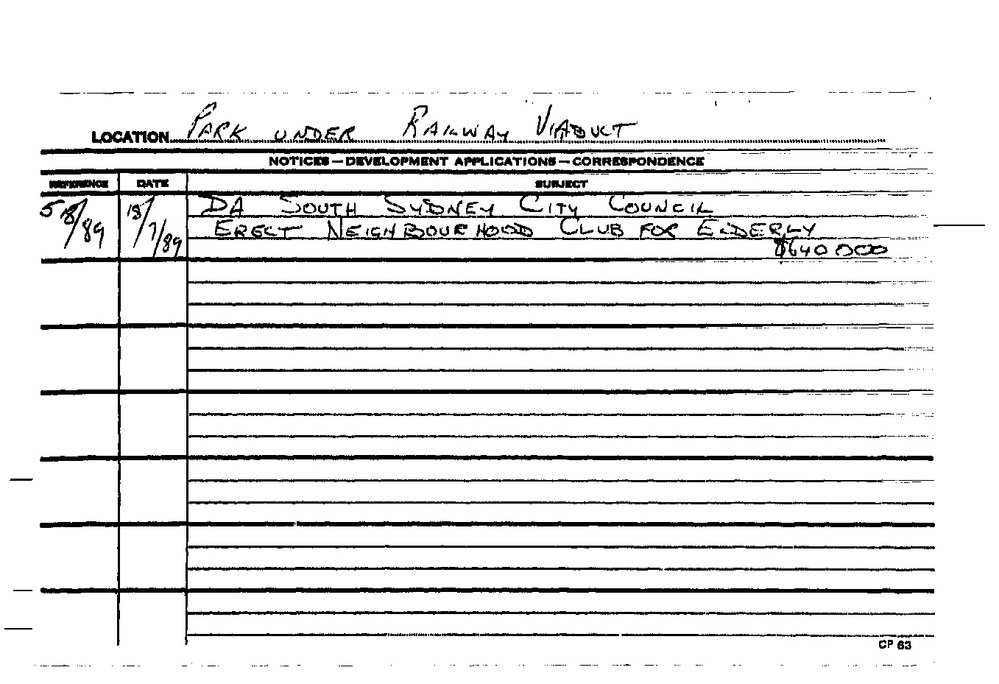 LOCATION PARK UNDER RAILWAY VIADUCT
NOTICES—DEVELOPMENT APPLICATIONS—CORRESPONDENCE
REFERENCE DATE SUBJECT
518/89 18/7/89 DA SOUTH SYDNEY CITY COUNCIL
ERECT NEIGHBOURHOOD CLUB FOR ELDERLY
$640 000
CP 63